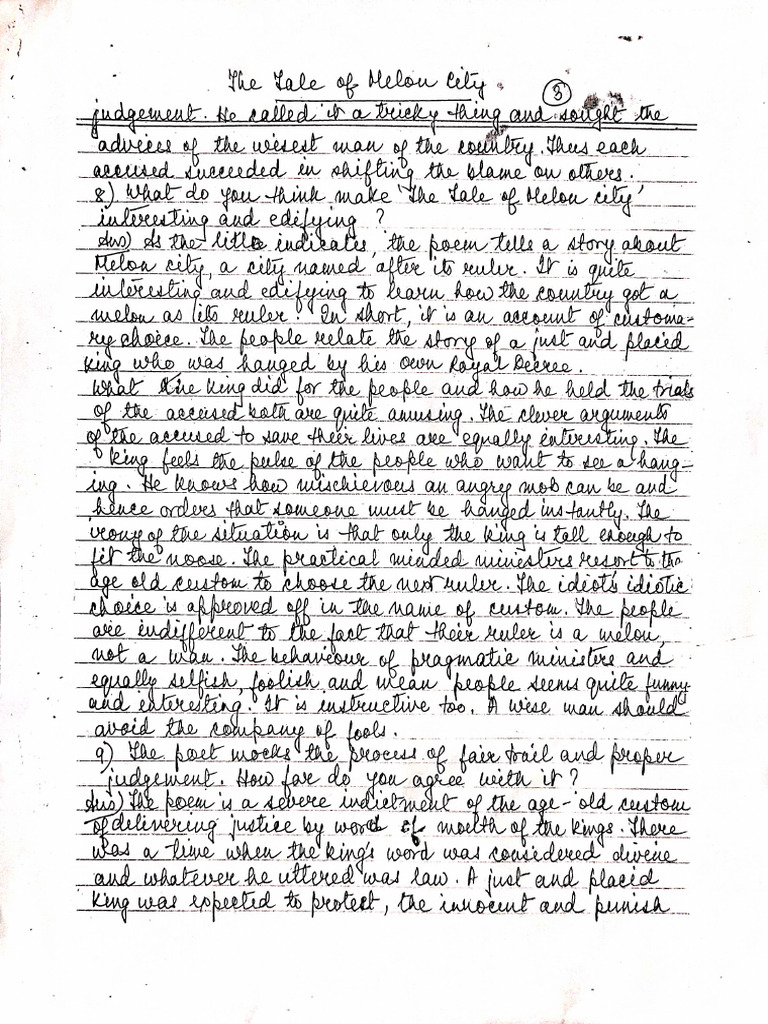 The Tale of Melon City
5
judgement. He called it a tricky thing and sought the
advices of the wisest man of the country. Thus each
accused succeeded in shifting the blame on others.
8) What do you think make 'The Tale of Melon city'
interesting and edifying ?
Ans) As the title indicates, the poem tells a story about
Melon city, a city named after its ruler. It is quite
interesting and edifying to learn how the country got a
melon as its ruler. In short, it is an account of customa-
ry choice. The people relate the story of a just and placid
King who was hanged by his own Royal Decree.
What the King did for the people and how he held the trials
of the accused both are quite amusing. The clever arguments
of the accused to save their lives are equally interesting. The
King feels the pulse of the people who want to see a hang-
ing. He knows how mischievous an angry mob can be and
hence orders that someone must be hanged instantly. The
irony of the situation is that only the King is tall enough to
fit the noose. The practical minded ministers resort to the
age old custom to choose the next ruler. The idiot's idiotic
choice is approved off in the name of custom. The people
are indifferent to the fact that their ruler is a melon,
not a man. The behaviour of pragmatic ministers and
equally selfish, foolish and mean people seems quite funny
and interesting. It is instructive too. A wise man should
avoid the company of fools.
9) The poet mocks the process of fair trail and proper
judgement. How far do you agree with it ?
Ans) The poem is a severe indictment of the age-old custom
of delivering justice by word of mouth of the kings. There
was a time when the king's word was considered divine
and whatever he uttered was law. A just and placid
King was expected to protect, the innocent and punish